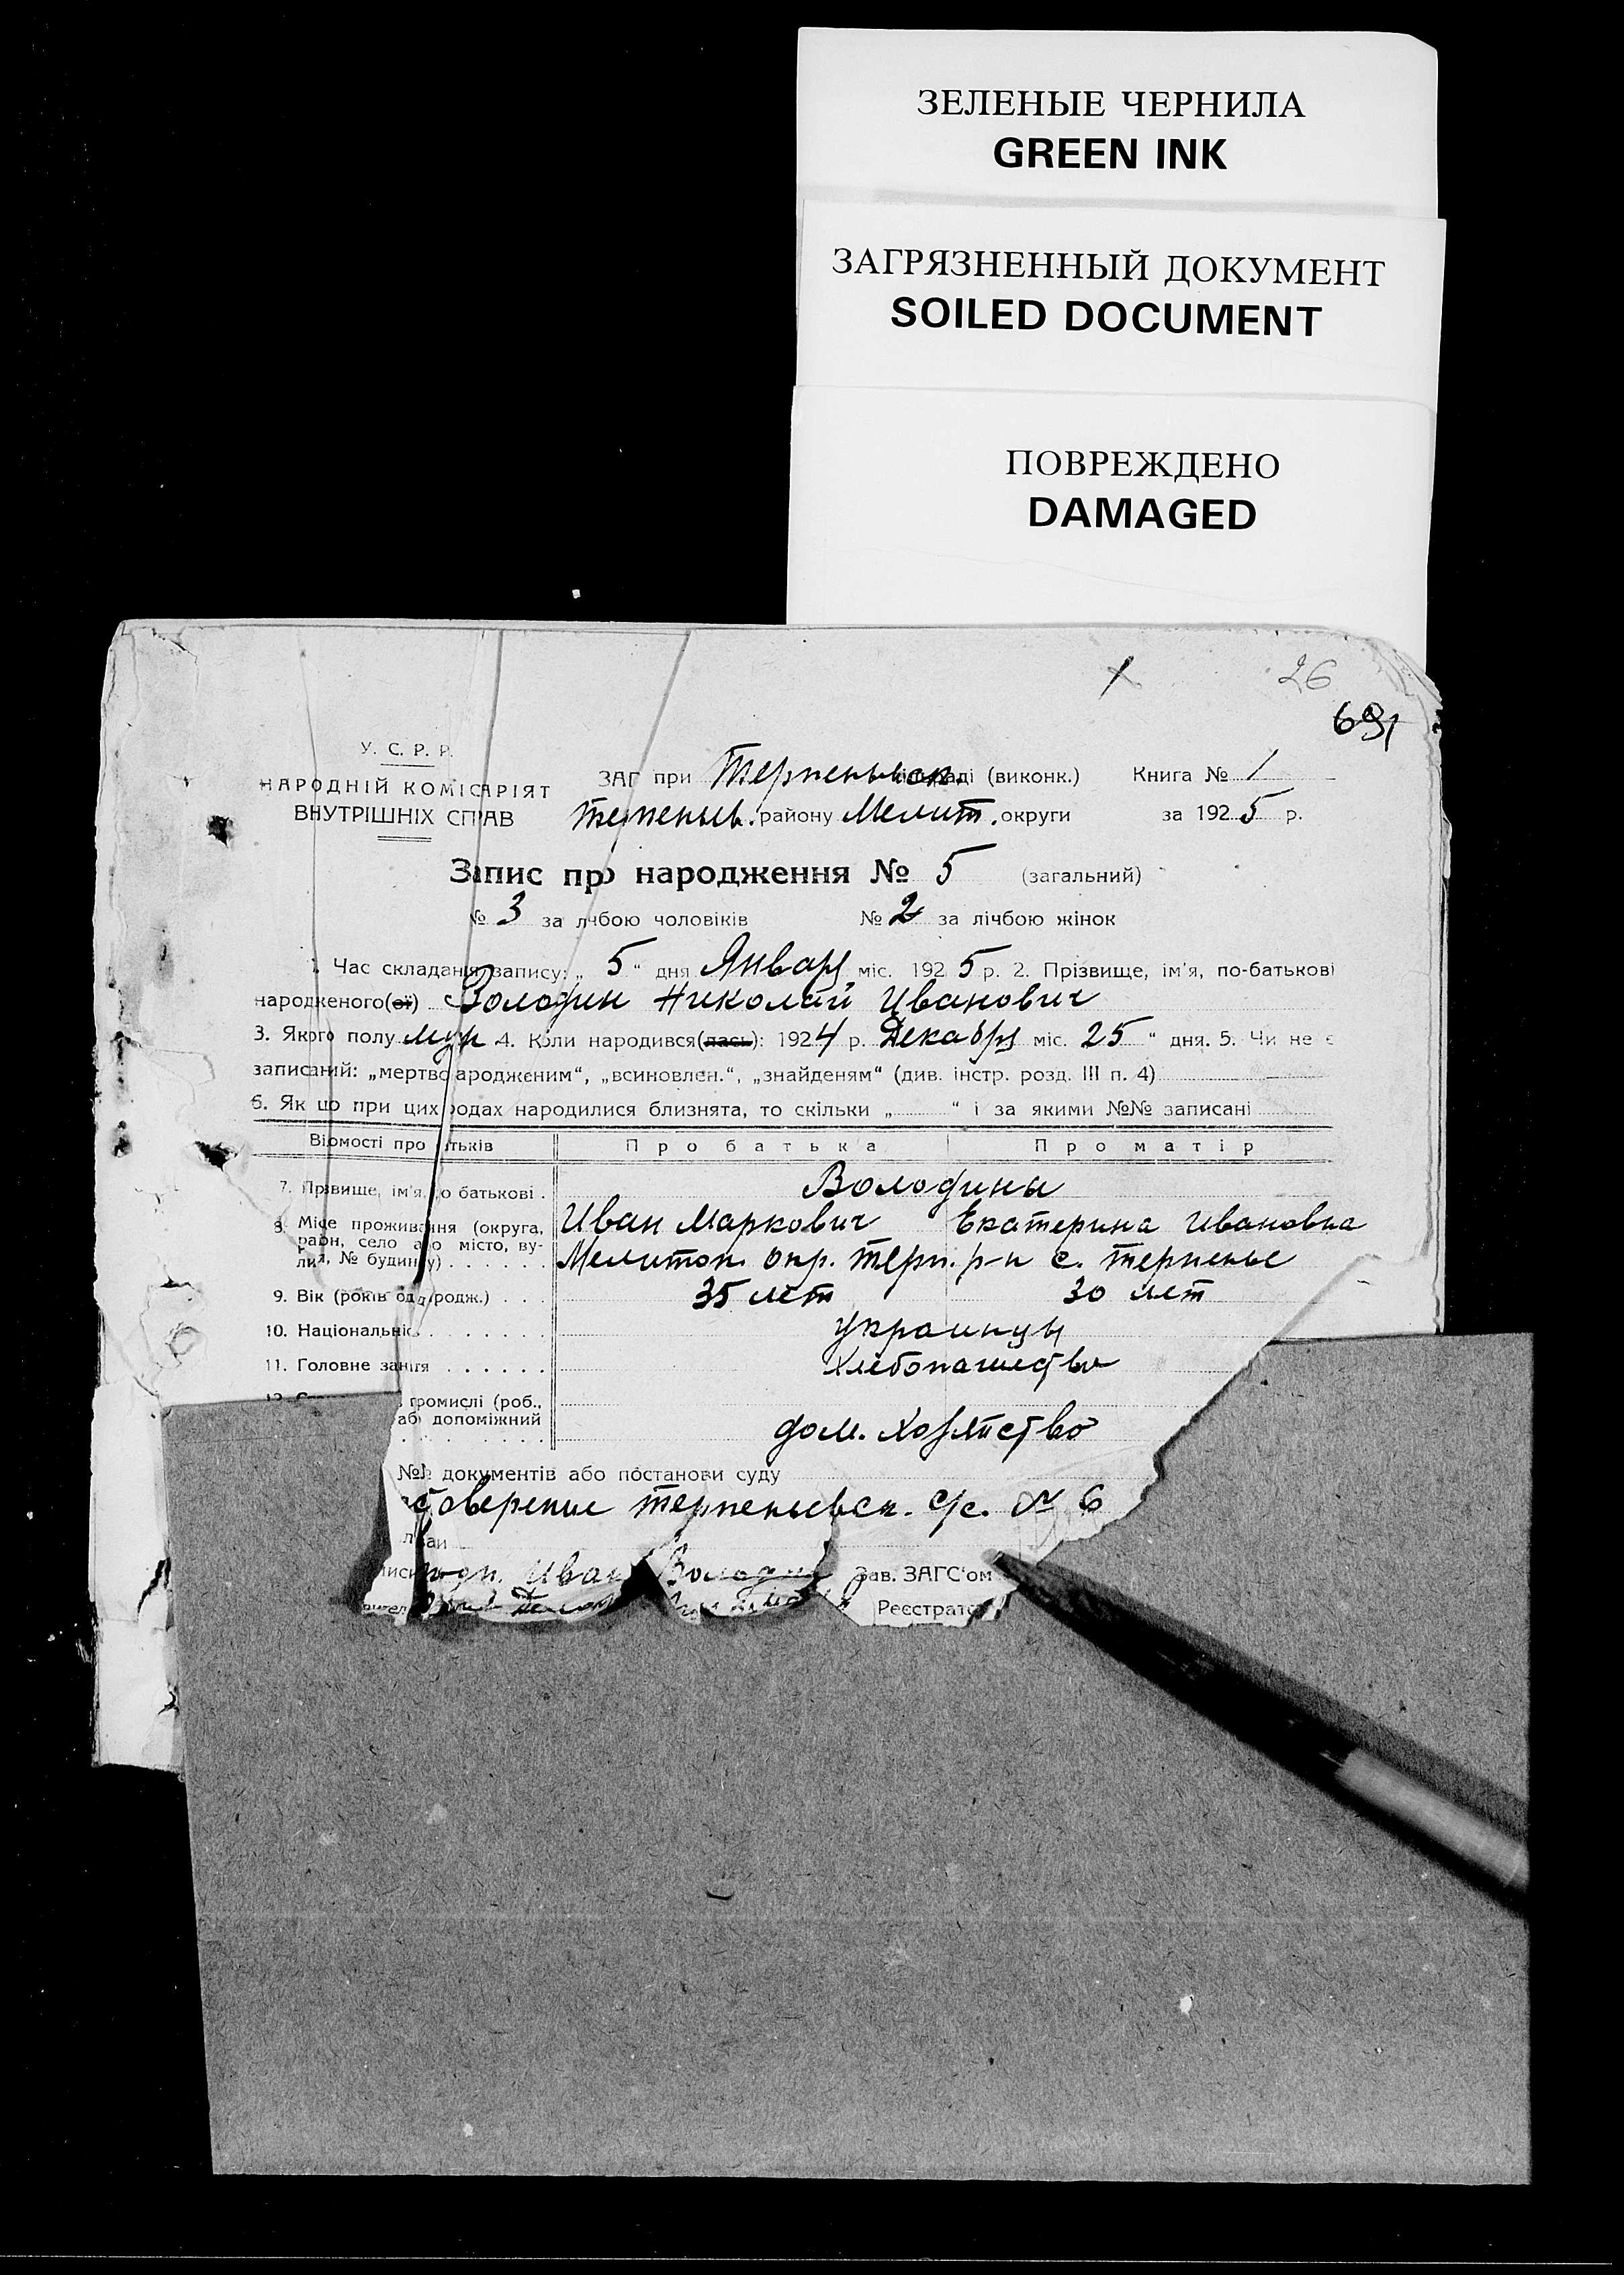 ЗЕЛЕНЫЕ ЧЕРНИЛА
GREEN INK
ЗАГРЯЗНЕННЫЙ ДОКУМЕНТ
SOILED DOCUMENT
ПОВРЕЖДЕНО
DAMAGED
26
69
У. С. Р. Р.
НАРОДНІЙ КОМІСАРІЯТ
ВНУТРІШНІХ СПРАВ
ЗАГ при Терпеньевск. (виконк.) Книга № 1
району Мелит. округи за 1925 р.
Запис про народження № 5 (загальний)
№ 3 за лічбою чоловіків № 2 за лічбою жінок
1. Час складання запису: „ 5 “ дня Январ міс. 1925 р. 2. Прізвище, ім'я, по-батькові
народженого(ої) Володин Николай Иванович
3. Якого полу муж 4. Коли народився(лась): 1924 р. Декабря міс. 25 “ дня. 5. Чи не є
записаний: „мертвонародженим“, „всиновлен.“, „знайденям“ (див. інстр. розд. III п. 4)
6. Як що при цих родах народилися близнята, то скільки „ “ і за якими №№ записані
Відомості про батьків Про батька Про матір
7. Прізвище, ім'я, по батькові . Володины
Иван Маркович Екатерина Ивановна
8. Місце проживання (округа,
район, село або місто, ву-
лиця, № будинку) . . . . . . Мелитоп. окр. Терп. р-н с. Терпенье
9. Вік (років од народж.) . . . 35 лет 30 лет
10. Національніс . . . . . . . украинцы
11. Головне заняття . . . . . . Хлебопашество
промислі (роб.,
або допоміжний
дом. Хозяйство
№№ документів або постанови суду
Терпеньевск. с/с. № 6
Иван Володин Зав. ЗАГС'ом
Реєстрато